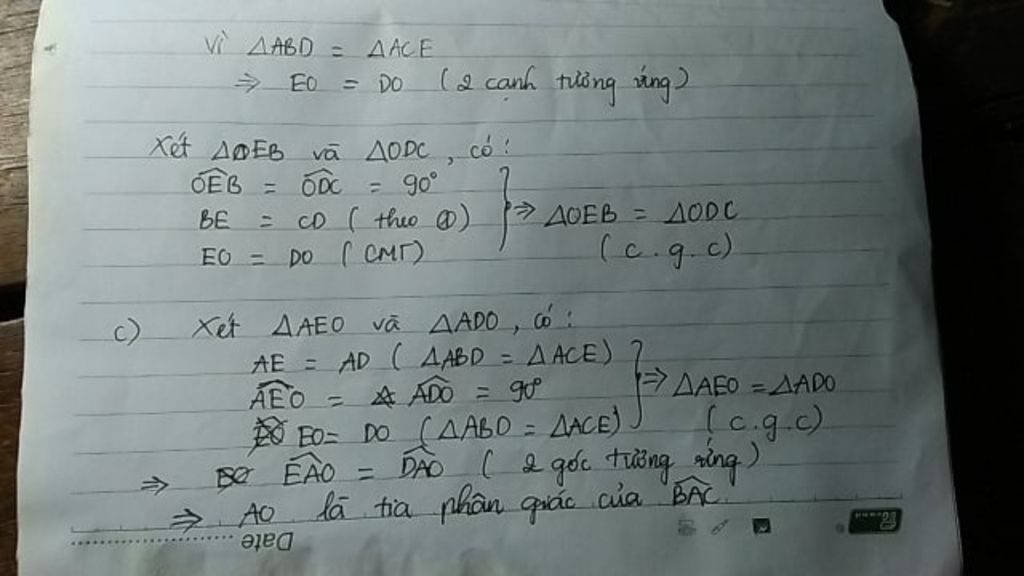 Vì ΔABD = ΔACE
⇒ EO = DO ( 2 cạnh tương ứng )
Xét ΔOEB và ΔODC , có :
OEB = ODC = 90°
BE = CD ( theo ① )
EO = DO ( CMT )
⇒ ΔOEB = ΔODC
( c . g . c )
c) Xét ΔAEO và ΔADO , có :
AE = AD ( ΔABD = ΔACE )
AEO = ADO = 90°
EO = DO ( ΔABD = ΔACE )
⇒ ΔAEO = ΔADO
( c . g . c )
⇒ EAO = DAO ( 2 góc tương ứng )
⇒ AO là tia phân giác của BAC
Date